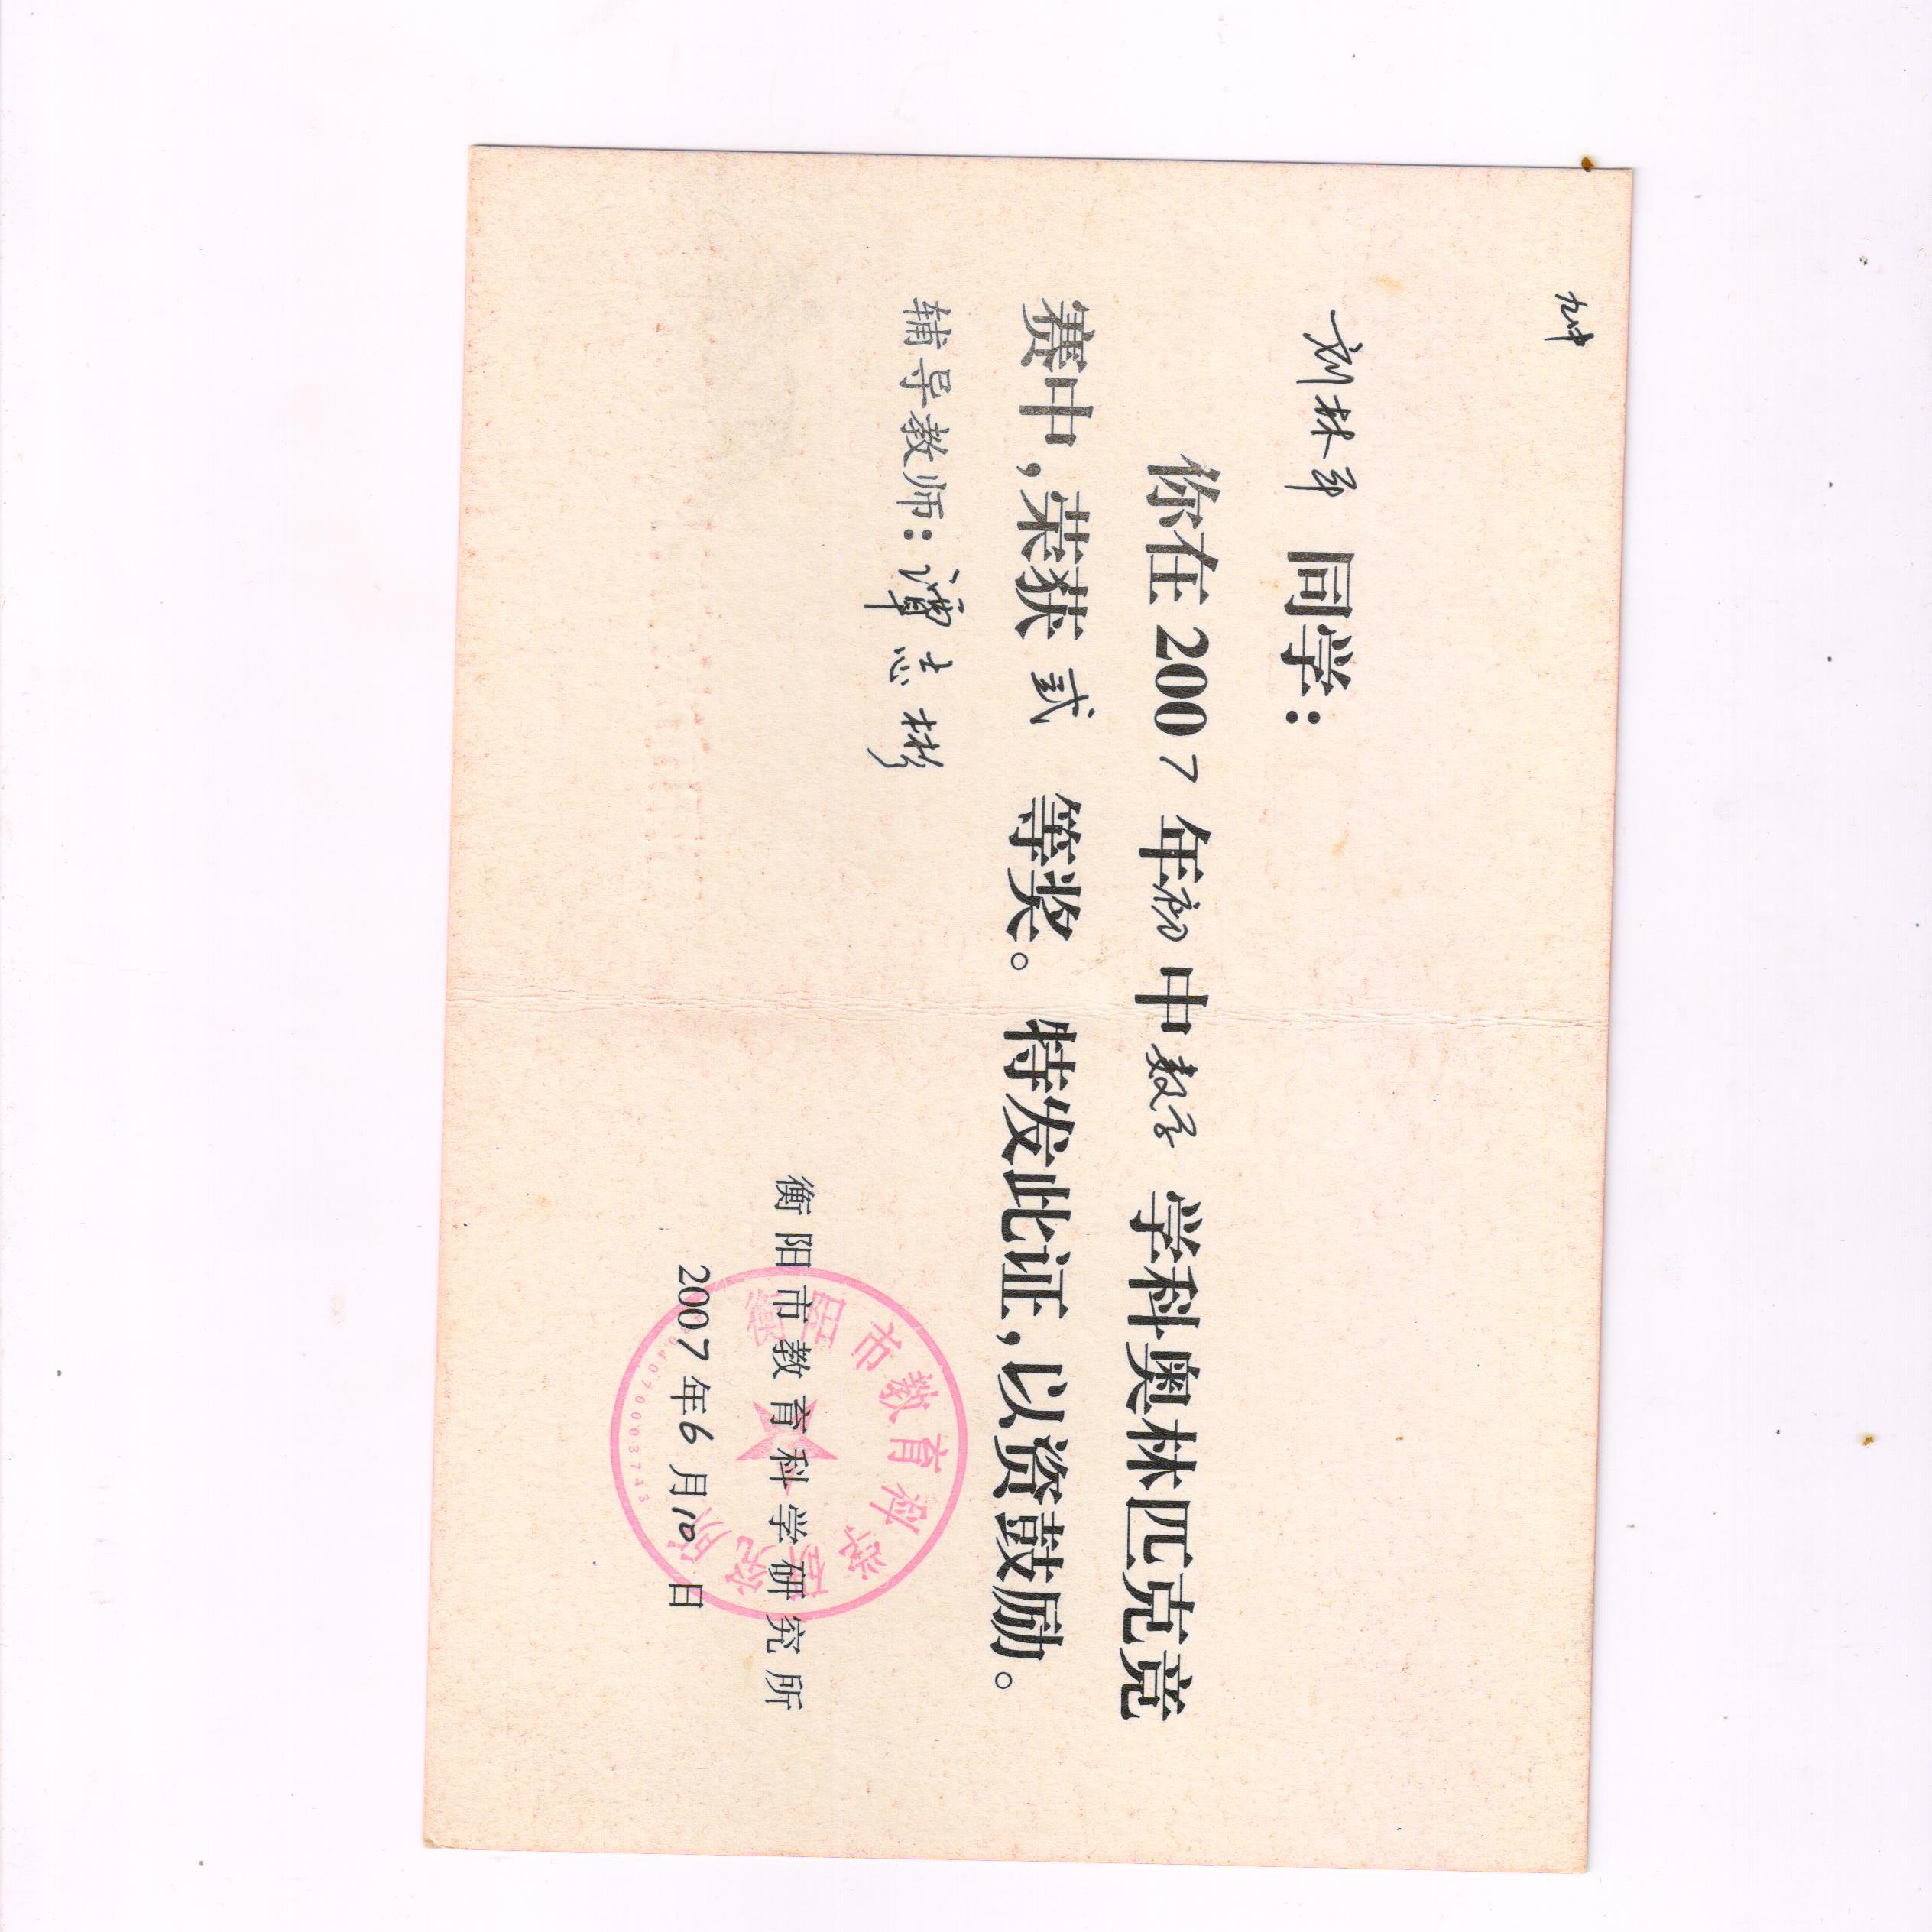 九中
刘林平 同学:
你在2007年初中数学学科奥林匹克竞
赛中,荣获 贰 等奖。特发此证,以资鼓励。
辅导教师:谭志彬
衡阳市教育科学研究所
2007年6月10日
衡阳市教育科学研究所